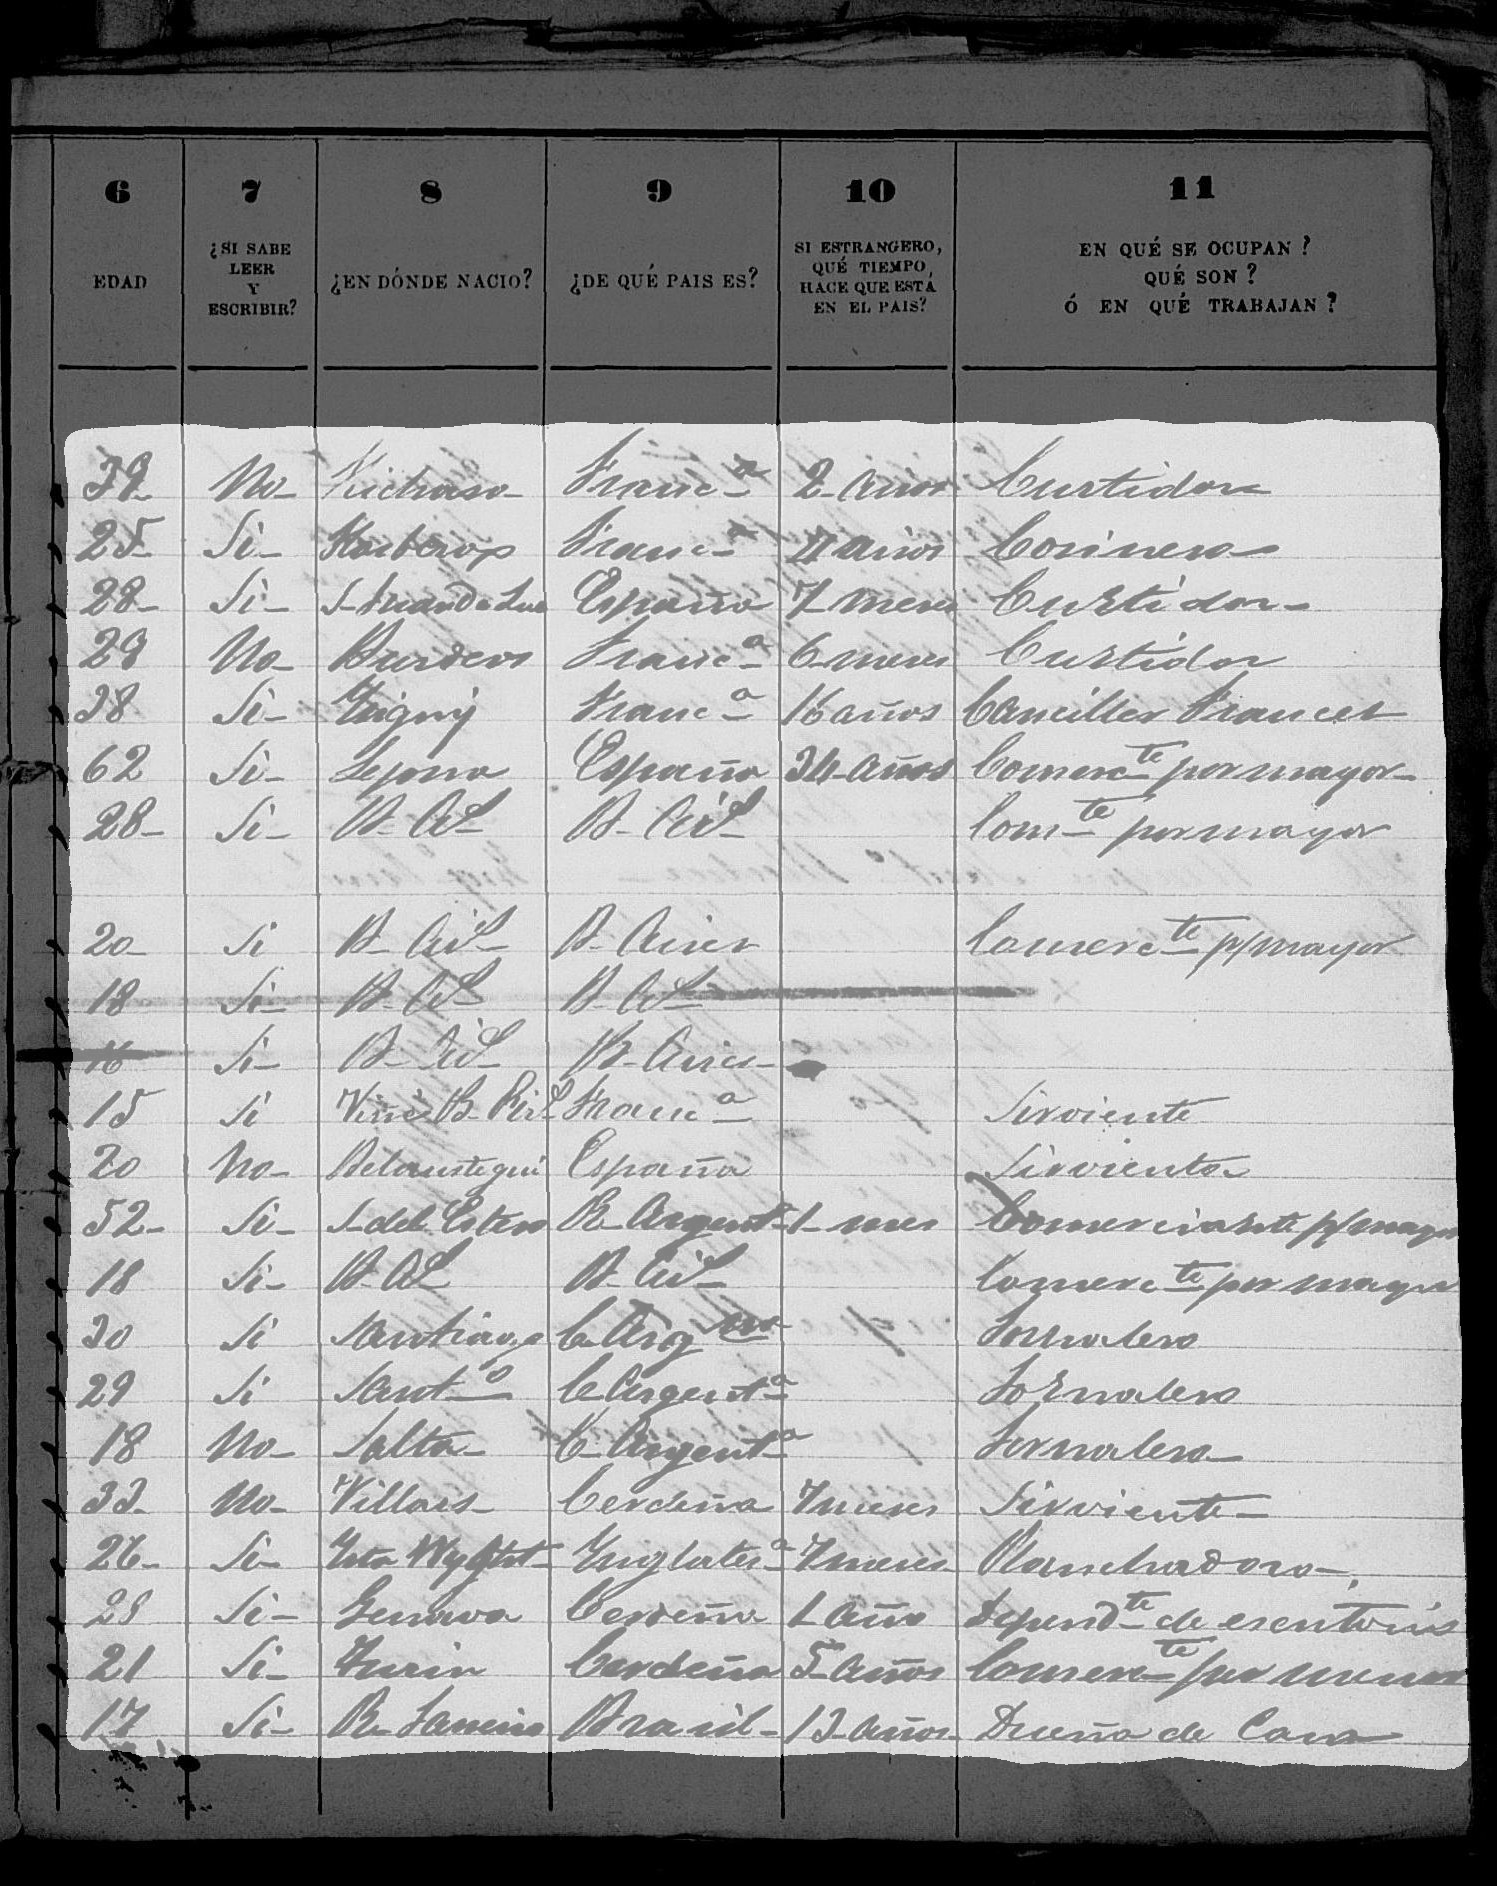 6 7 8 9 10 11
EDAD ¿SI SABE LEER Y ESCRIBIR? ¿EN DÓNDE NACIO? ¿DE QUÉ PAIS ES? SI ESTRANGERO, QUÉ TIEMPO HACE QUE ESTÁ EN EL PAIS? EN QUÉ SE OCUPAN? QUÉ SON? Ó EN QUÉ TRABAJAN?
39 No Franc-a 2 años Curtidor
25 Si Franc-a años Cosinero
28 Si S. Juan de Luz España 7 meses Curtidor
29 No Burdeos Franc-a 6 meses Curtidor
38 Si Franc-a 16 años Canciller Frances
62 Si España 34 años Comerc-te por mayor
28 Si B. As B. Ais Com-te por mayor
20 Si B. Ais B. Aires Comerc-te p/mayor
18 Si B. As B. As
16 Si B. Ais B. Aires
15 Si Franc-a Sirviente
20 No España Sirvienta
52 Si S. del Estero R. Argent-a 1 mes Comerciante p/mayor
18 Si B. As B. Ais Comerc-te por mayor
30 Si Santiago C. Arg Jornalero
29 Si Sant-o C. Argent-a Jornalero
18 No Salta C. Argent-a Jornalero
33 No Villars Cerdeña 7 meses Sirviente
26 Si Inglater-a 7 meses Planchadora
28 Si Genova Cerdeña 1 año Depend-te de escritorio
21 Si Turin Cerdeña 5 años Comerc-te por menor
17 Si R. Janeiro Brasil 13 años Dueña de Casa